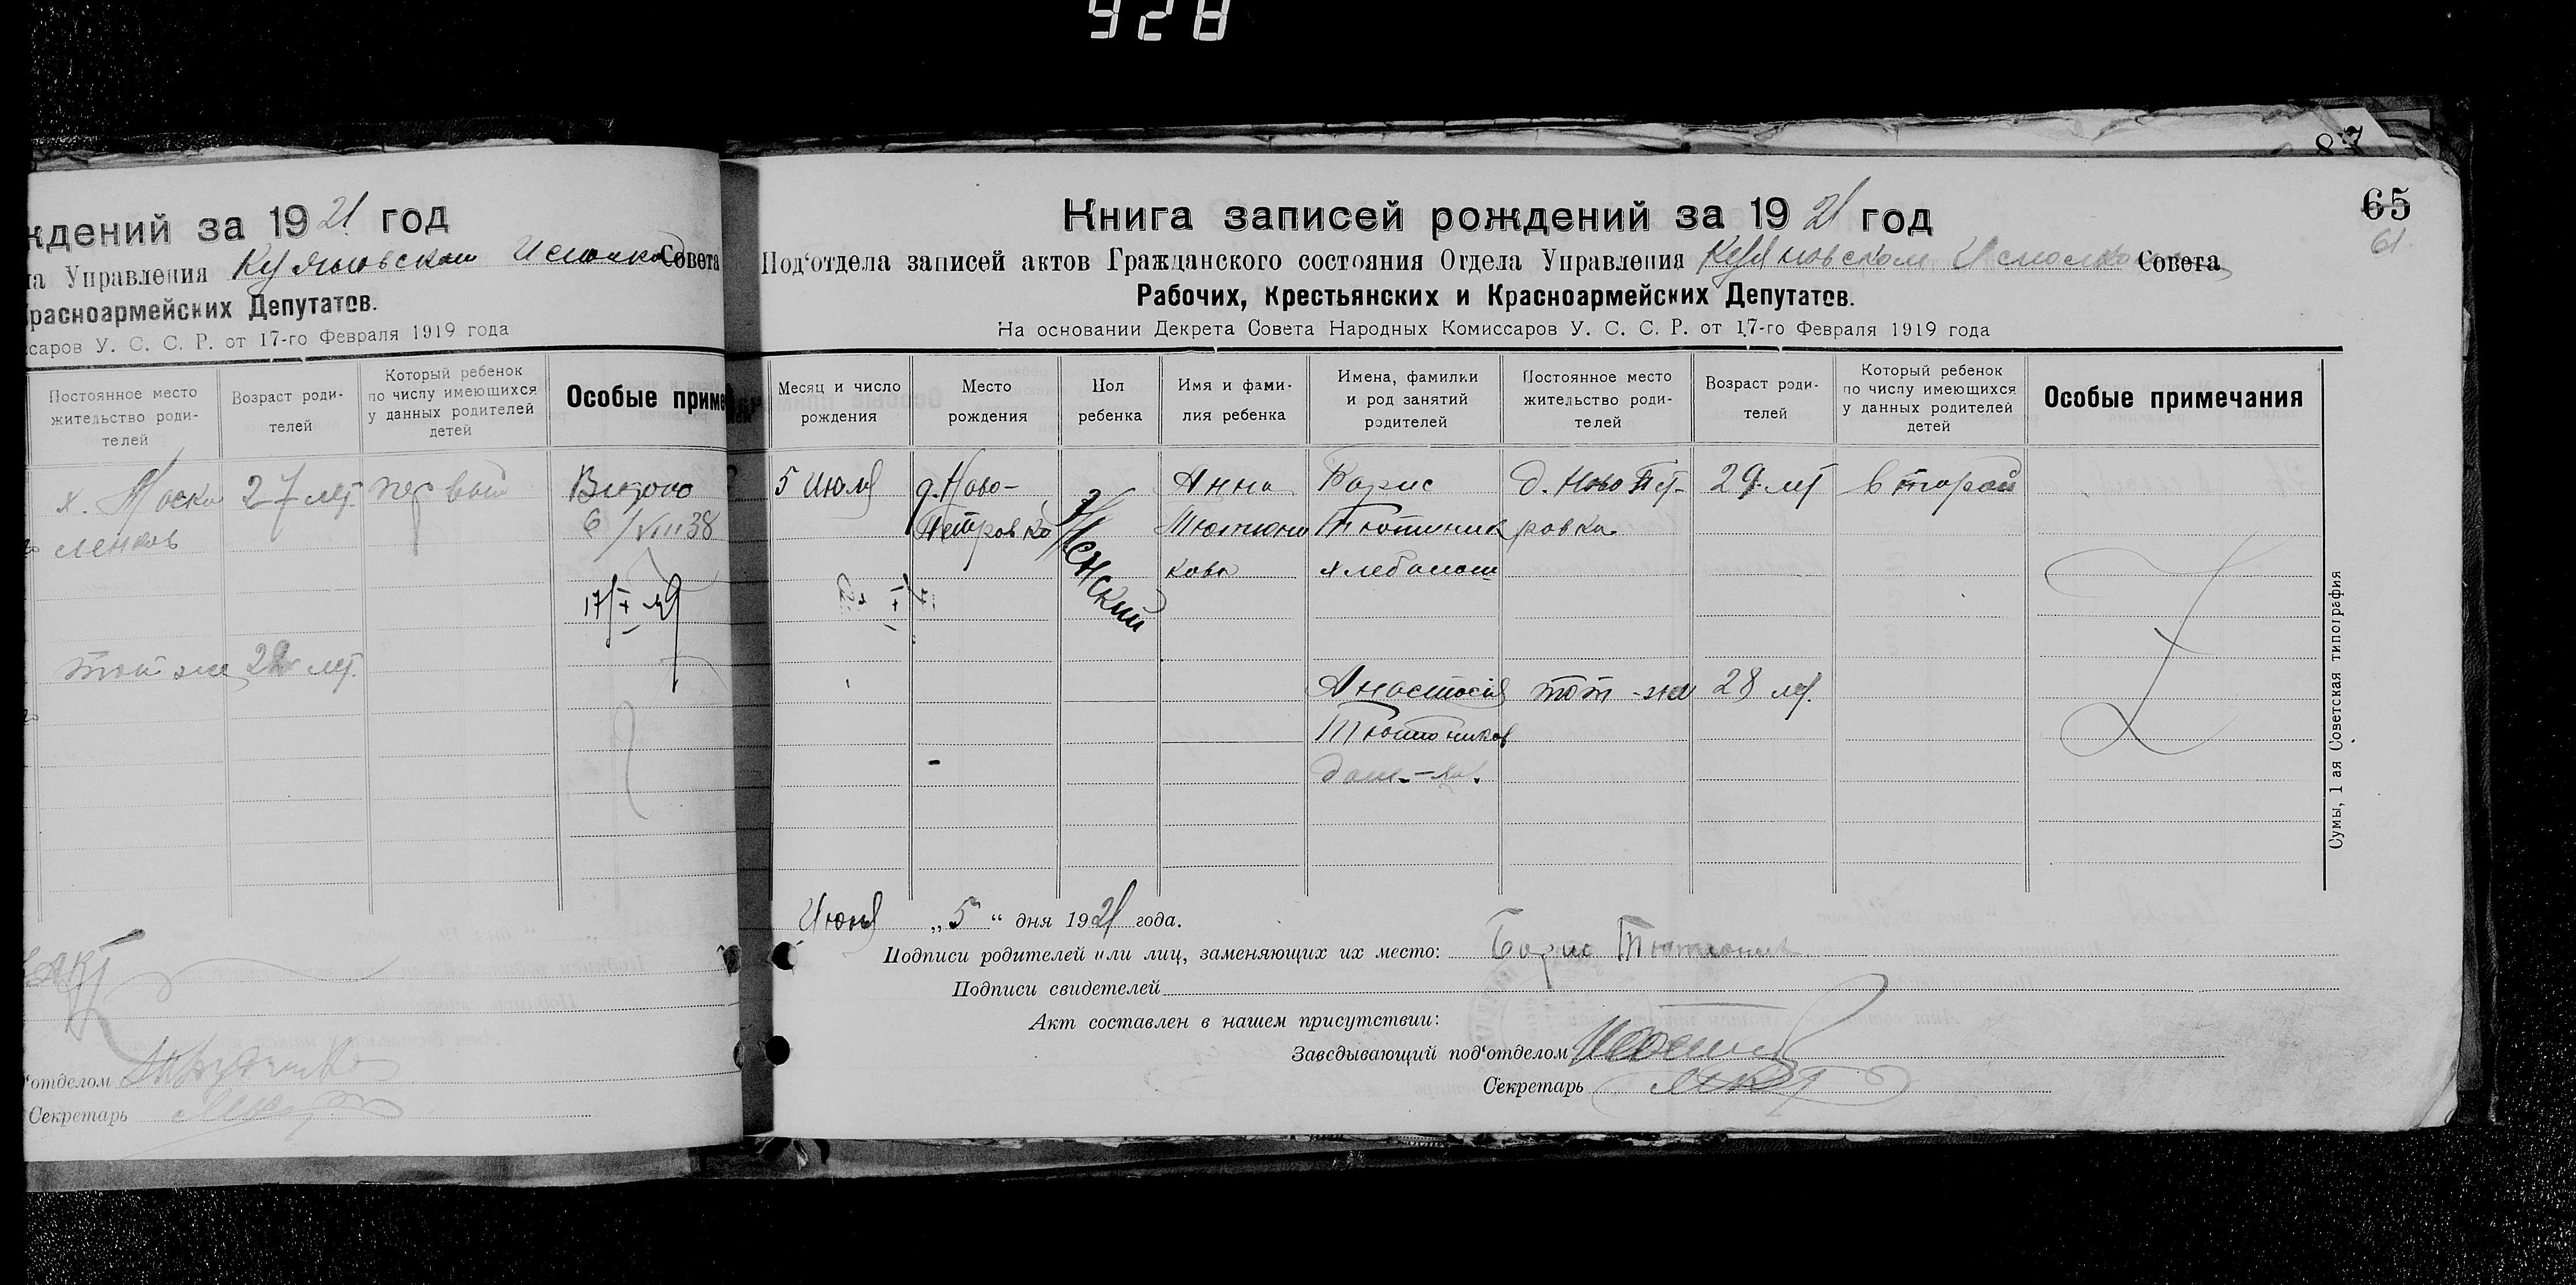 928
87
ждений за 1921 год
на Управления Куяновском Исполко Совета
Красноармейских Депутатов.
ссаров У. С. С. Р. от 17-го Февраля 1919 года
Постоянное место жительство роди-телей
Возраст роди-телей
Который ребенок по числу имеющихся у данных родителей детей
Особые приме
х. Моска 27 лет. первый Видано
ленков 6/VIII 38
17/X
тот же 22 лет.
отделом
Секретарь
65
61
Книга записей рождений за 1921 год
Под‘отдела записей актов Гражданского состояния Отдела Управления Куяновском Исполко Совета
Рабочих, Крестьянских и Красноармейских Депутатов.
На основании Декрета Совета Народных Комиссаров У. С. С. Р. от 17-го Февраля 1919 года
Месяц и число рождения
Место рождения
Пол ребенка
Имя и фами-лия ребенка
Имена, фамилии и род занятий родителей
Постоянное место жительство роди-телей
Возраст роди-телей
Который ребенок по числу имеющихся у данных родителей детей
Особые примечания
5 июля д. Ново- Женский Анна Борис д. Ново Пет- 29 лет второй
Петровка Тютюни Тютюник ровка
кова хлебопаш
Анастасия тот-же 28 лет.
Тютюников
дом.-хоз.
Июля „5“ дня 1921 года.
Подписи родителей или лиц, заменяющих их место: Борис Тютюник
Подписи свидетелей
Акт составлен в нашем присутствии:
Заведывающий под‘отделом
Секретарь
Сумы, 1 ая Советская типография